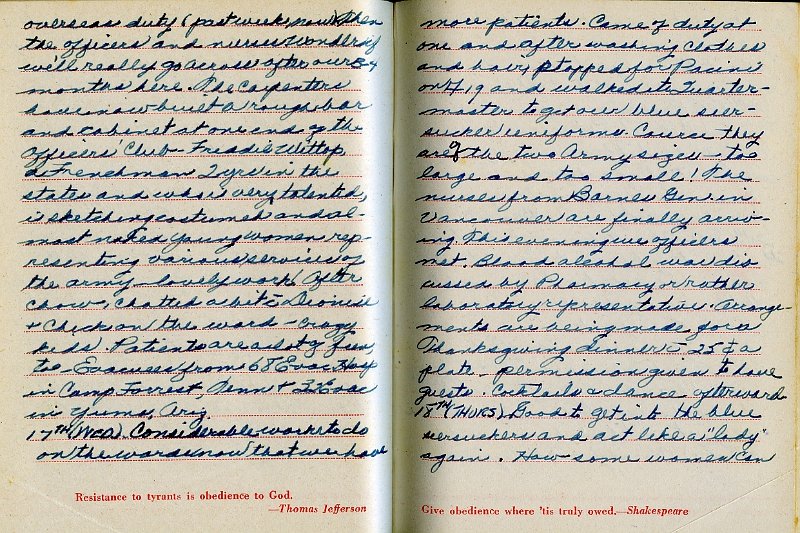 overseas duty (past week, now) then
the officers and nurses wonder if
we'll really go across after our 3-4
months here. The carpenters
have now built a rough bar
and cabinet at one end of the
Officers' Club - Freddie Wittop
a Frenchman 2 yrs in the
states and who is very talented,
is sketching costumed and al-
most naked young women rep-
resenting various services of
the army - lovely work! After
chow, chatted a bit c̄
+ Chick on the ward - crazy
kids. Patients are a lot of fun,
too. Evacuees from 68 Evac. Hosp
in Camp Forrest, Tenn + Evac
in Yuma, Ariz.
17TH (Wed). Considerable work to do
on the wards now that we have
Resistance to tyrants is obedience to God.
—Thomas Jefferson
more patients. Came off duty at
one and after washing clothes
and hair, stopped for Pacini
on H, 19 and walked to Quarter-
master to get our blue seer-
sucker uniforms. Cource they
are of the two Army sizes - too
large and too small! The
nurses from Barnes Gen. in
Vancouver are finally arriv-
ing. This evening we officers
met. Blood alcohol was dis
cussed by Pharmacy or rather
laboratory representative. Arrange-
ments are being made for a
Thanksgiving dinner c̄ 25¢ a
plate - permission given to have
guests. Cocktails & dance afterward
18TH (THURS) Good to get into the blue
seersuckers and act like a "lady"
again. How some women can
Give obedience where 'tis truly owed.—Shakespeare